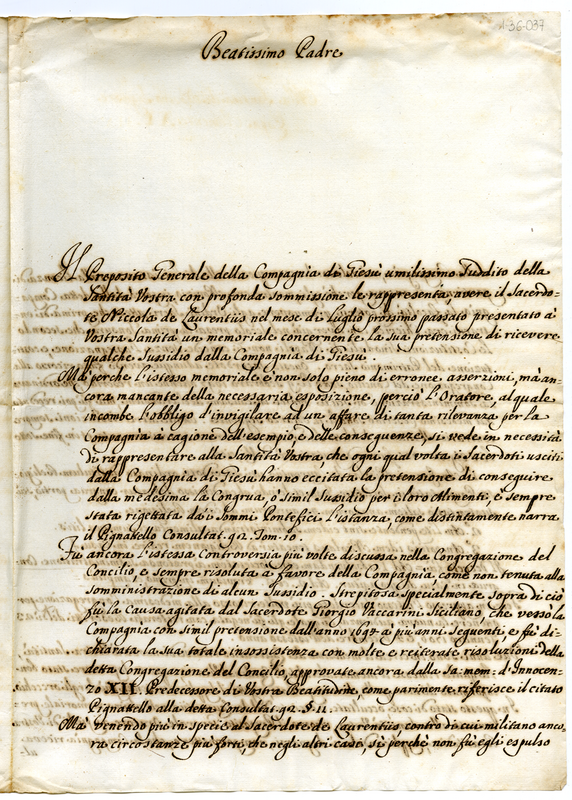 1-36-037
Beatissimo Padre
Il Preposito Generale della Compagnia di Giesù umilissimo Suddito della
Santità Vostra con profonda sommissione le rappresenta avere il Sacerdo-
te Niccola de Laurentiis nel mese di Luglio prossimo passato presentato à
Vostra Santità un memoriale concernente la sua pretensione di ricevere
qualche Sussidio dalla Compagnia di Giesù.
Mà perche l'istesso memoriale è non solo pieno di erronee asserzioni, mà an-
cora mancante della necessaria esposizione, perciò l'Oratore, al quale
incombe l'obbligo d'invigilare ad un affare di tanta rilevanza per la
Compagnia à cagione dell'esempio, e delle conseguenze, si vede in necessità
di rappresentare alla Santità Vostra, che ogni qual volta i Sacerdoti usciti
dalla Compagnia di Giesù hanno eccitata la pretensione di conseguire
dalla medesima la Congrua, ò simil Sussidio per i loro Alimenti, è sempre
stata rigettata dai Sommi Pontefici l'istanza, come distintamente narra
il Pignatello Consultat. 92. Tom. 10.
Fù ancora l'istessa Controversia più volte discussa nella Congregazione del
Concilio, e sempre risoluta à favore della Compagnia come non tenuta alla
somministrazione di alcun Sussidio. Strepitosa specialmente sopra di ciò
fù la Causa agitata dal Sacerdote Giorgio Vaccarini Siciliano, che vessò la
Compagnia con simil pretensione dall'anno 1694 à più anni Seguenti, e fù di-
chiarata la sua totale insussistenza con molte e reiterate risoluzioni della
detta Congregazione del Concilio, approvate ancora dalla Sa: mem: d'Innocen-
zo XII. Predecessore di Vostra Beatitudine, come parimente riferisce il citato
Pignatello alla detta Consultat. 92. §. 11.
Mà venendo più in specie al Sacerdote de Laurentiis, contro di cui militano anco-
ra circostanze più forti, che negli altri casi, sì perchè non fù egli espulso